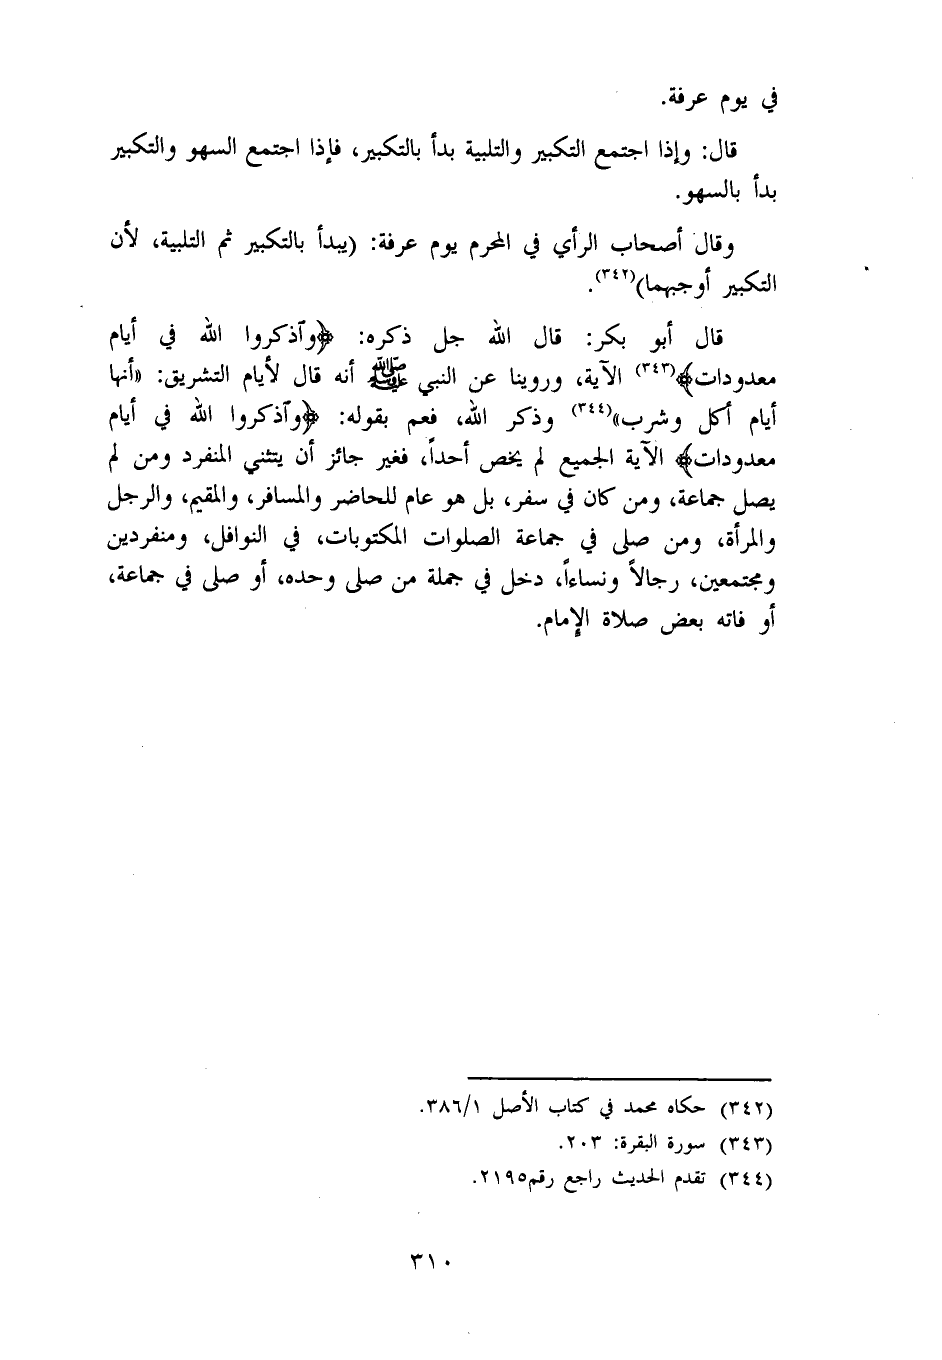 في يوم عرفة.
قال: وإذا اجتمع التكبير والتلبية بدأ بالتكبير، فإذا اجتمع السهو والتكبير
بدأ بالسهو.
وقال أصحاب الرأي في المحرم يوم عرفة: (يبدأ بالتكبير ثم التلبية، لأن
التكبير أوجبهما)(٣٤٢).
قال أبو بكر: قال الله جل ذكره: ﴿وٱذكروا الله في أيام
معدودات﴾(٣٤٣) الآية، وروينا عن النبي ﷺ أنه قال لأيام التشريق: «أنها
أيام أكل وشرب»(٣٤٤) وذكر الله، فعم بقوله: ﴿وٱذكروا الله في أيام
معدودات﴾ الآية الجميع لم يخص أحداً، فغير جائز أن يتثني المنفرد ومن لم
يصل جماعة، ومن كان في سفر، بل هو عام للحاضر والمسافر، والمقيم، والرجل
والمرأة، ومن صلى في جماعة الصلوات المكتوبات، في النوافل، ومنفردين
ومجتمعين، رجالاً ونساءاً، دخل في جملة من صلى وحده، أو صلى في جماعة،
أو فاته بعض صلاة الإمام.
(٣٤٢) حكاه محمد في كتاب الأصل ٣٨٦/١.
(٣٤٣) سورة البقرة: ٢٠٣.
(٣٤٤) تقدم الحديث راجع رقم٢١٩٥.
٣١٠